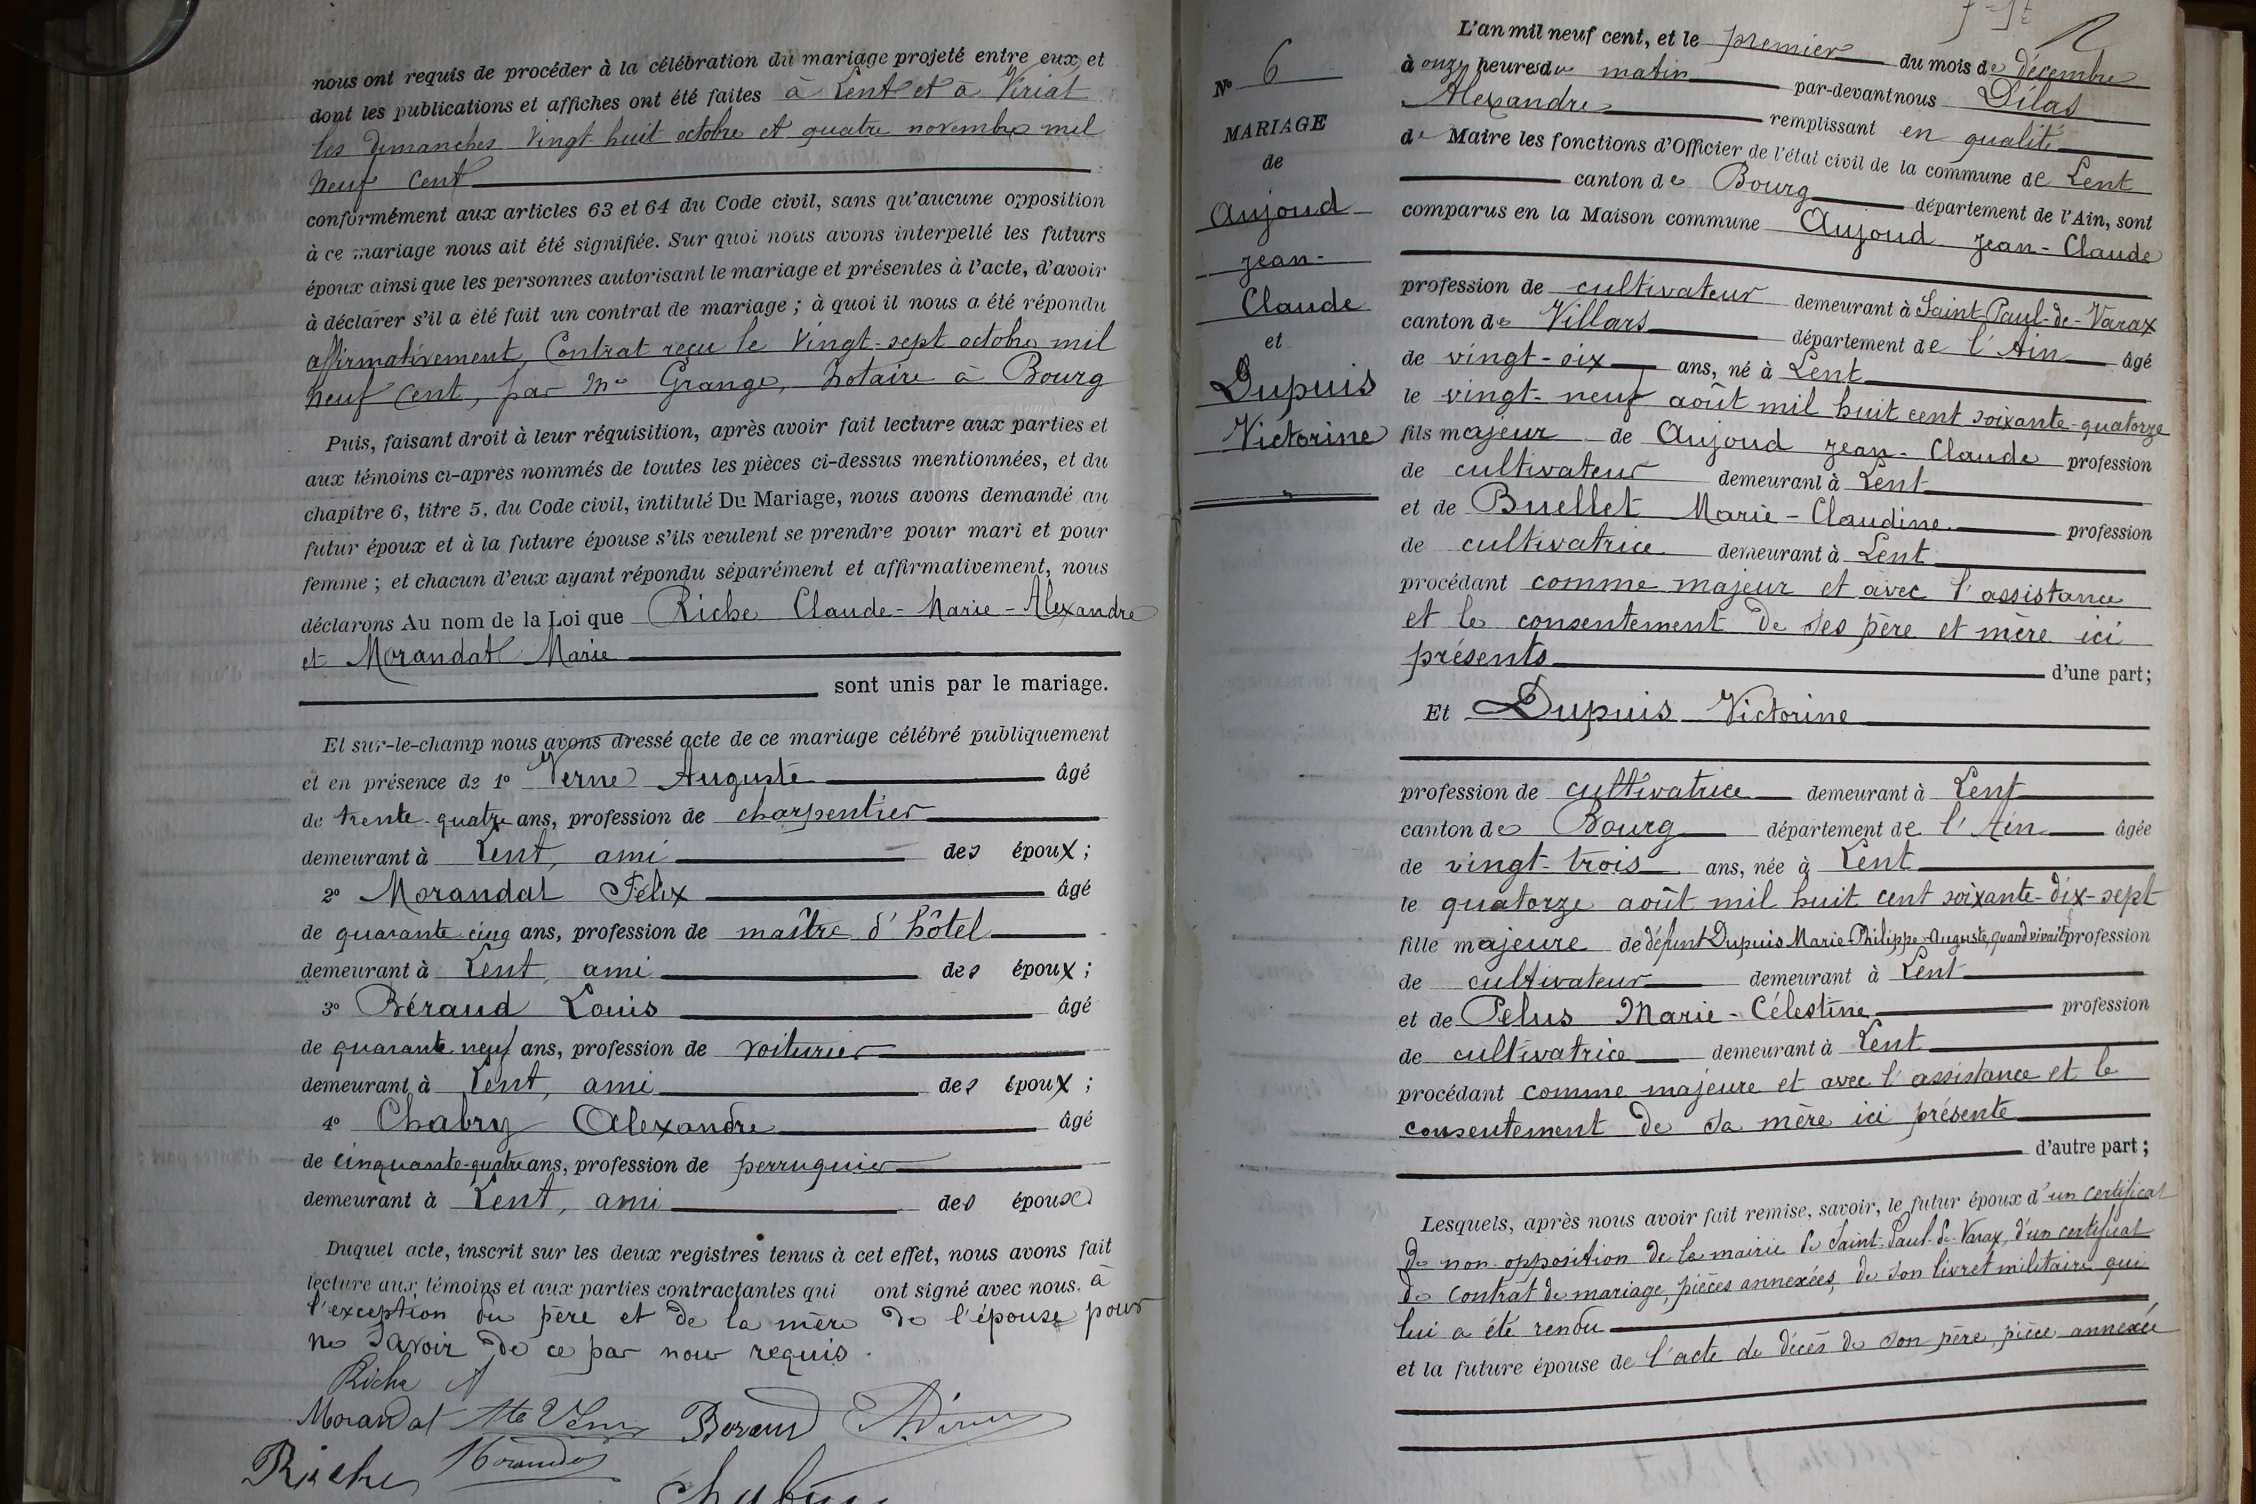 nous ont requis de procéder à la célébration du mariage projeté entre eux, et
dont les publications et affiches ont été faites à Lent et à Viriat
les dimanches vingt-huit octobre et quatre novembre mil
neuf cent
conformément aux articles 63 et 64 du Code civil, sans qu'aucune opposition
à ce mariage nous ait été signifiée. Sur quoi nous avons interpellé les futurs
époux ainsi que les personnes autorisant le mariage et présentes à l'acte, d'avoir
à déclarer s'il a été fait un contrat de mariage ; à quoi il nous a été répondu
affirmativement, Contrat reçu le vingt-sept octobre mil
neuf cent, par Me Grange, notaire à Bourg
Puis, faisant droit à leur réquisition, après avoir fait lecture aux parties et
aux témoins ci-après nommés de toutes les pièces ci-dessus mentionnées, et du
chapitre 6, titre 5, du Code civil, intitulé Du Mariage, nous avons demandé au
futur époux et à la future épouse s'ils veulent se prendre pour mari et pour
femme ; et chacun d'eux ayant répondu séparément et affirmativement, nous
déclarons Au nom de la Loi que Riche Claude-Marie-Alexandre
et Morandat Marie
sont unis par le mariage.
Et sur-le-champ nous avons dressé acte de ce mariage célébré publiquement
et en présence de 1° Verne Auguste âgé
de trente-quatre ans, profession de charpentier
demeurant à Lent, ami des époux ;
2° Morandat Félix âgé
de quarante-cinq ans, profession de maître d'hôtel
demeurant à Lent, ami des époux ;
3° Béraud Louis âgé
de quarante-neuf ans, profession de voiturier
demeurant à Lent, ami des époux ;
4° Chabry Alexandre âgé
de cinquante-quatre ans, profession de perruquier
demeurant à Lent, ami des époux
Duquel acte, inscrit sur les deux registres tenus à cet effet, nous avons fait
lecture aux témoins et aux parties contractantes qui ont signé avec nous, à
l'exception du père et de la mère de l'épouse pour
ne savoir de ce par nous requis.
Riche A
Morandat Ate Verne Beraud
Riche Morandat
N° 6
MARIAGE
de
Aujoud
Jean-
Claude
et
Dupuis
Victorine
L'an mil neuf cent, et le premier du mois de décembre
à onze heures du matin par-devant nous Dilas
Alexandre remplissant en qualité
de Maire les fonctions d'Officier de l'état civil de la commune de Lent
canton de Bourg département de l'Ain, sont
comparus en la Maison commune Aujoud Jean-Claude
profession de cultivateur demeurant à Saint-Paul-de-Varax
canton de Villars département de l'Ain âgé
de vingt-six ans, né à Lent
le vingt-neuf août mil huit cent soixante-quatorze
fils majeur de Aujoud Jean-Claude profession
de cultivateur demeurant à Lent
et de Buellet Marie-Claudine profession
de cultivatrice demeurant à Lent
procédant comme majeur et avec l'assistance
et le consentement de ses père et mère ici
présents d'une part ;
Et Dupuis Victorine
profession de cultivatrice demeurant à Lent
canton de Bourg département de l'Ain âgée
de vingt-trois ans, née à Lent
le quatorze août mil huit cent soixante-dix-sept
fille majeure de défunt Dupuis Marie-Philippe-Auguste, quand vivait profession
de cultivateur demeurant à Lent
et de Pelus Marie-Célestine profession
de cultivatrice demeurant à Lent
procédant comme majeure et avec l'assistance et le
consentement de sa mère ici présente
d'autre part ;
Lesquels, après nous avoir fait remise, savoir, le futur époux d'un certificat
de non-opposition de la mairie de Saint-Paul-de-Varax, d'un certificat
de contrat de mariage, pièces annexées, de son livret militaire qui
lui a été rendu
et la future épouse de l'acte de décès de son père, pièce annexée